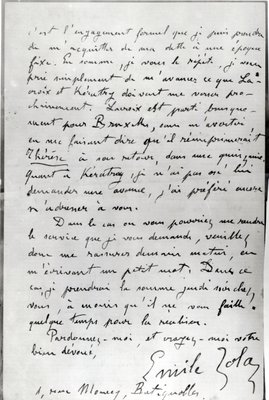 c'est l'engagement formel que je puis prendre
de m'acquitter de ma dette à une époque
fixe. En somme, je vous le répète, je vous
prie simplement de m'avancer ce que La-
croix et Kératry doivent me verser pro-
chainement. Lacroix est parti brusque-
ment pour Bruxelles, sans m'avertir
en me faisant dire qu'il réimprimerait
Thérèse à son retour, dans une quinzaine.
Quant à Kératry, je n'ai pas osé lui
demander une avance, j'ai préféré encore
m'adresser à vous.
Dans le cas où vous pourriez me rendre
le service que je vous demande, veuillez
donc me rassurer demain matin, en
m'écrivant un petit mot. Dans ce
cas, je prendrai la somme jeudi soir chez
vous, à moins qu'il ne vous faille
quelque temps pour la réaliser.
Pardonnez-moi, et croyez-moi votre
bien dévoué,
Emile Zola
1, rue Moncey, Batignolles